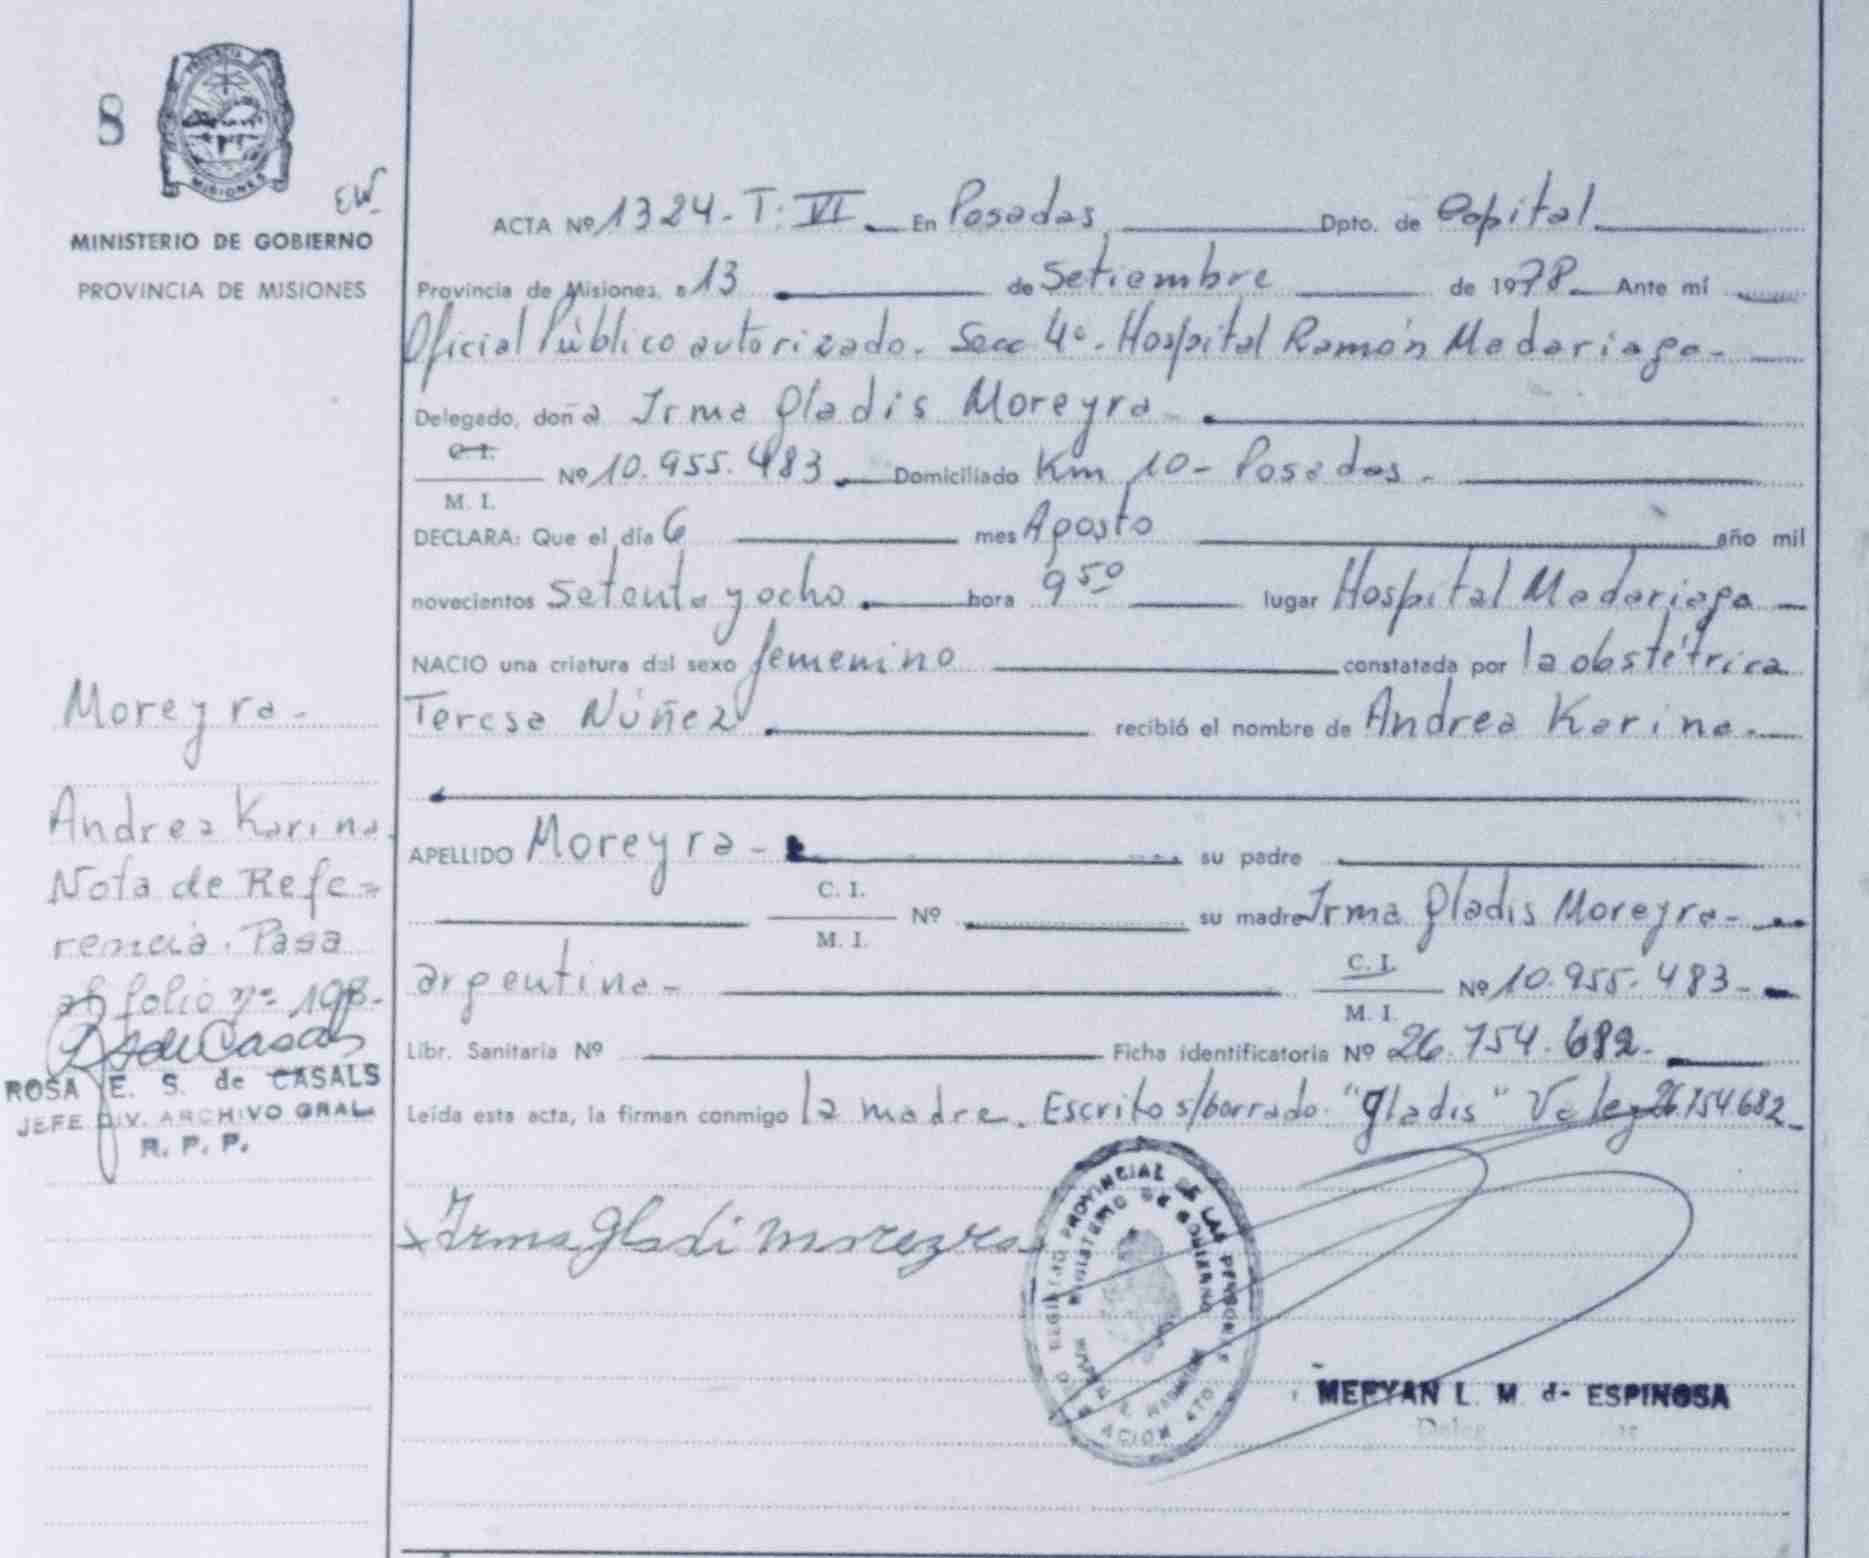 8
MISIONES
EW
MINISTERIO DE GOBIERNO
PROVINCIA DE MISIONES
ACTA Nº 1324-T:VI En Posadas Dpto. de Capital
Provincia de Misiones, a 13 de Setiembre de 1978 Ante mí
Oficial Público autorizado. Secc 4ª. Hospital Ramón Madariaga-
Delegado, doña Irma Gladis Moreyra
C. I.
Nº 10.955.483 Domiciliado Km 10- Posadas-
M. I.
DECLARA: Que el día 6 mes Agosto año mil
novecientos setenta y ocho hora 9 50 lugar Hospital Madariaga
NACIO una criatura del sexo femenino constatada por la obstétrica
Teresa Núñez recibió el nombre de Andrea Karina.
APELLIDO Moreyra- su padre
C. I.
Nº su madre Irma Gladis Moreyra-
M. I.
argentina- C. I. Nº 10.955.483-
M. I.
Libr. Sanitaria Nº Ficha identificatoria Nº 26.754.682-
Leída esta acta, la firman conmigo la madre. Escrito s/borrado. "Gladis" Vale 26.754.682
Irma Gladi Moreyra
REGISTRO PROVINCIAL DE LAS PERSONAS
MINISTERIO DE GOBIERNO
MERYAN L. M. de ESPINOSA
Moreyra-
Andrea Karina.
Nota de Refe=
rencia. Pasa
al folio nº 198-
ROSA E. S. de CASALS
JEFE DIV. ARCHIVO GRAL
R. P. P.